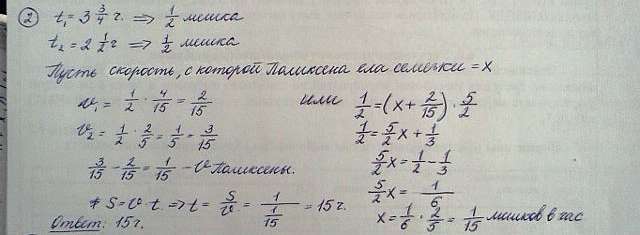 ② t₁ = 3 3/4 ч. ⟹ 1/2 мешка
t₂ = 2 1/2 ч ⟹ 1/2 мешка
Пусть скорость, с которой Поликсена ела семечки = x
v₁ = 1/2 · 4/15 = 2/15
v₂ = 1/2 · 2/5 = 1/5 = 3/15
3/15 - 2/15 = 1/15 - v Поликсены.
S = v · t. ⟹ t = S/v = 1/(1/15) = 15 ч.
Ответ: 15 ч.
или 1/2 = (x + 2/15) · 5/2
1/2 = 5/2 x + 1/3
5/2 x = 1/2 - 1/3
5/2 x = 1/6
x = 1/6 · 2/5 = 1/15 мешков в час